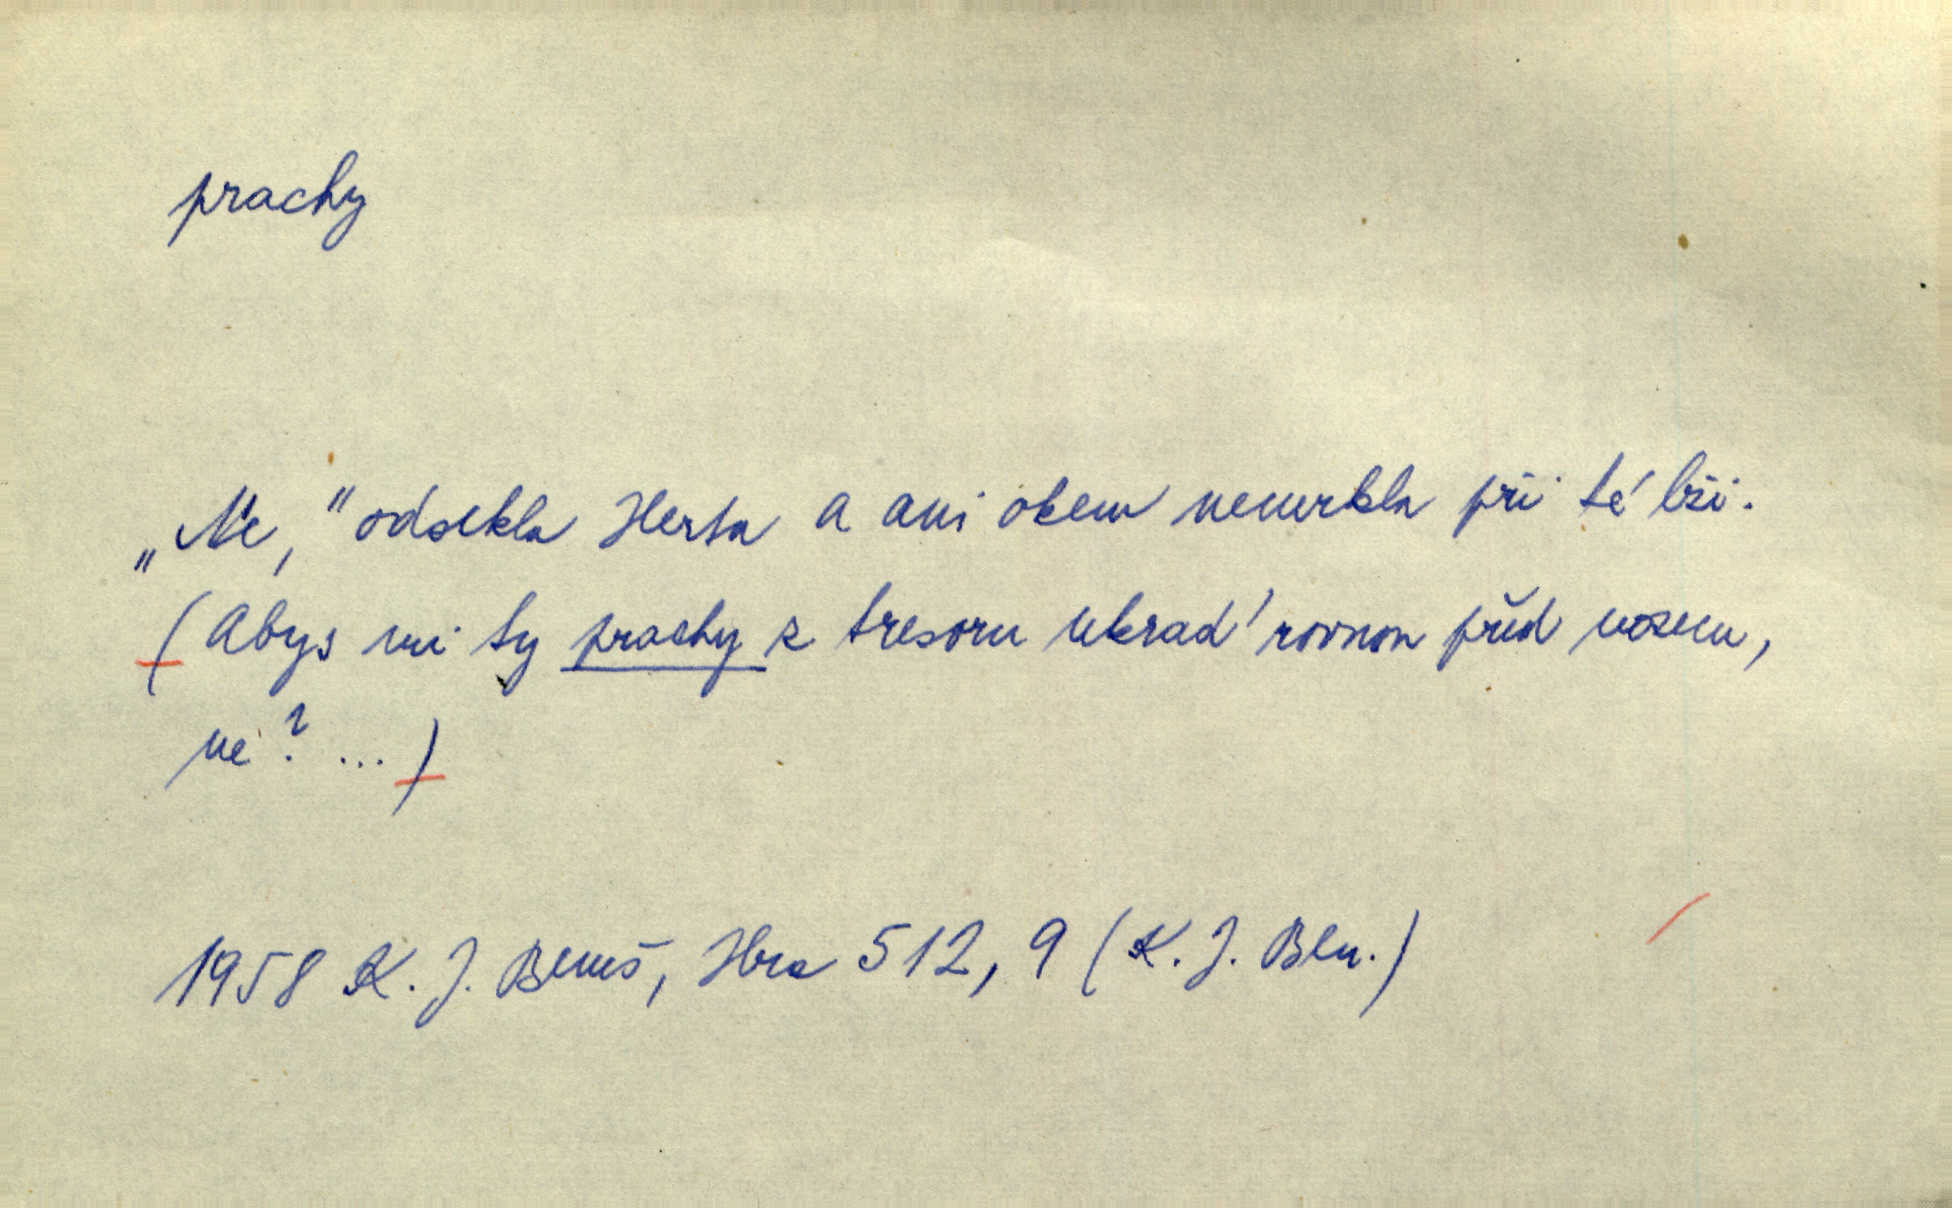 prachy
„Ne," odsekla Herta a ani okem nemrkla při té lži.
(Abys mi ty prachy z tresoru ukrad' rovnou před nosem,
ne? ...)
1958 K. J. Beneš, Hra 512, 9 (K. J. Ben.)